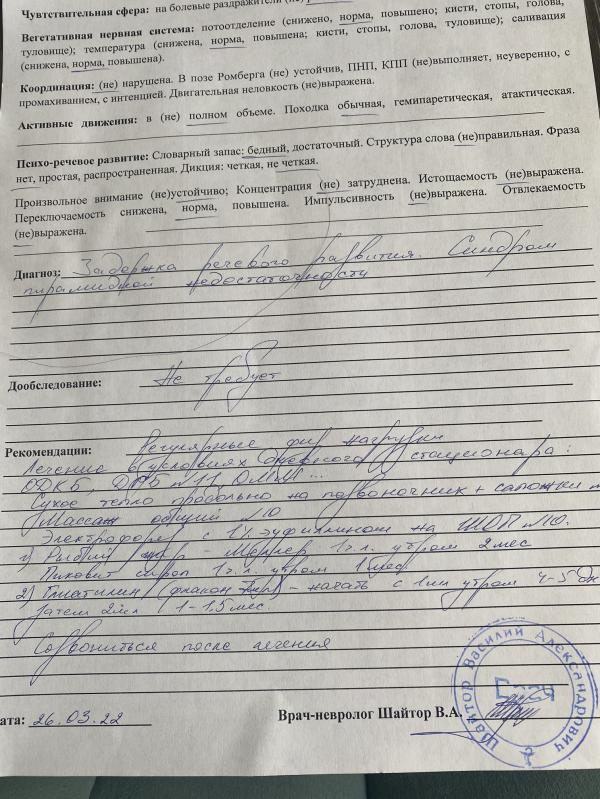 Чувствительная сфера: на болевые раздражители
Вегетативная нервная система: потоотделение (снижено, норма, повышено; кисти, стопы, голова,
туловище); температура (снижена, норма, повышена; кисти, стопы, голова, туловище); саливация
(снижена, норма, повышена).
Координация: (не) нарушена. В позе Ромберга (не) устойчив, ПНП, КПП (не)выполняет, неуверенно, с
промахиванием, с интенцией. Двигательная неловкость (не)выражена.
Активные движения: в (не) полном объеме. Походка обычная, гемипаретическая, атактическая.
Психо-речевое развитие: Словарный запас: бедный, достаточный. Структура слова (не)правильная. Фраза
нет, простая, распространенная. Дикция: четкая, не четкая.
Произвольное внимание (не)устойчиво; Концентрация (не) затруднена. Истощаемость (не)выражена.
Переключаемость снижена, норма, повышена. Импульсивность (не)выражена. Отвлекаемость
(не)выражена.
Диагноз: Задержка речевого развития. Синдром
пирамидной недостаточности
Дообследование: Не требует
Рекомендации: Регулярные физ нагрузки
Лечение в условиях дневного стационара:
ОДКБ, ДГБ №11, ...
Сухое тепло продольно на позвоночник + сапожки
Массаж общий №10
Электрофорез с 1% эуфиллином на ШОП №10.
1) Рыбий жир - Меллер 1ч.л. утром 2мес
Пиковит сироп 1ч.л. утром 1мес
2) Глиатилин (флакон) - начать с 1мл утром 4-5
Затем 2мл 1-1,5мес.
Созвониться после лечения
ата: 26.03.22
Врач-невролог Шайтор В.А.
Шайтор Василий Александрович